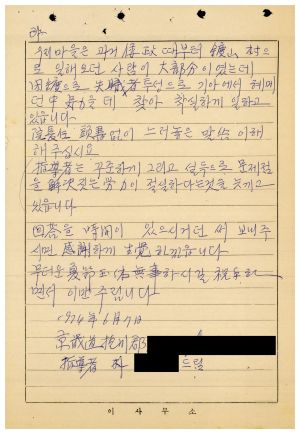 우리마을은 과거 倭政 때부터 鑛山 村으
로 일해오던 사람이 大部分이 였는데
因鑛으로 失職者 투성으로 기아에서 헤매
던 中 努力을 데 찾아 착실하게 일하고
있습니다.
院長任 頭序없이 느러놓은 말씀 이해
해 주십시요
指導者는 꾸준하게 그리고 설득으로 문제점
을 解決짓는 努力이 절실하다는것을 느끼고
있읍니다
回答을 時間이 있으시거던 써 보내주
시면 感謝하게 흐겠읍니다
무더운 夏節
면서 이만 주립니다
1974年 6月 7日
京畿道 抱川郡
指導者 드림
이 사 무 소